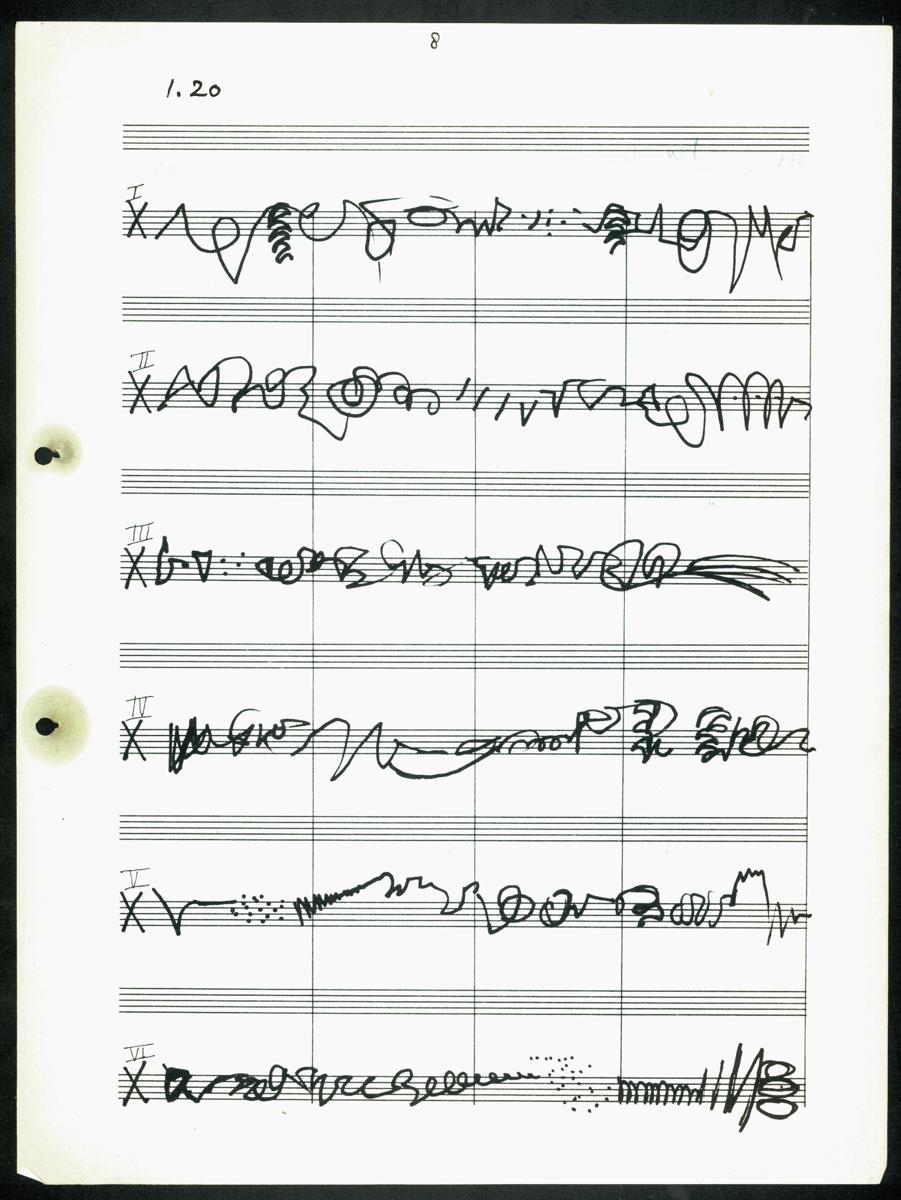 8
1.20
I
II
III
IV
V
VI